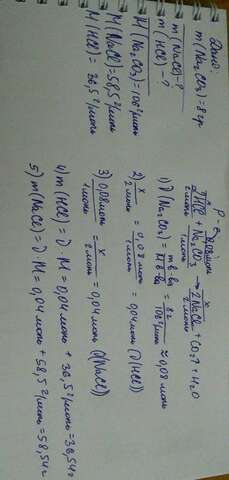 Дано:
m(Na₂CO₃)=8гр
m(NaCl)-?
m(HCl)-?
M(Na₂CO₃)=106г/моль
M(NaCl)=58,5г/моль
M(HCl)=36,5г/моль
0,08моль x
2HCl + Na₂CO₃ → 2NaCl + CO₂↑ + H₂O
2моль 1моль 2моль
1) ν(Na₂CO₃) = m в-ва / M в-ва = 8г / 106г/моль ≈ 0,08 моль
2) x / 2моль = 0,08 моль / 1моль = 0,04моль (ν(HCl))
3) 0,08моль / 1моль = x / 2моль = 0,04моль (ν(NaCl))
4) m(HCl) = ν · M = 0,04моль + 36,5г/моль = 36,54г
5) m(NaCl) = ν · M = 0,04моль + 58,5г/моль = 58,54г